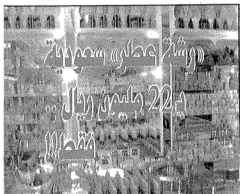 «رشة عطر» سعودية
بـ22 مليون ريال ..
فقط!!!